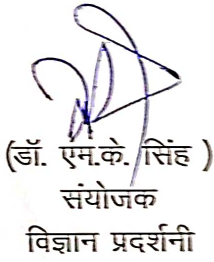 (डॉ. एम.के. सिंह )
संयोजक
विज्ञान प्रदर्शनी